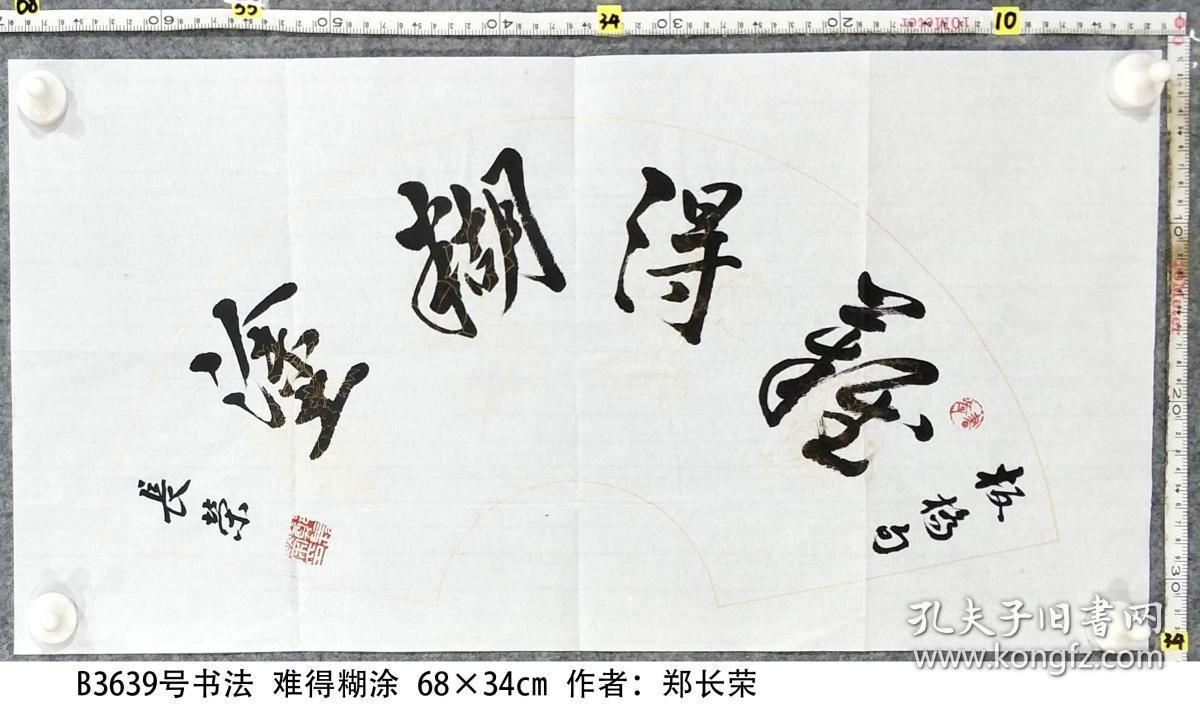 難得糊塗
板橋句
長榮
孔夫子旧书网
www.kongfz.com
B3639号书法 难得糊涂 68×34cm 作者：郑长荣